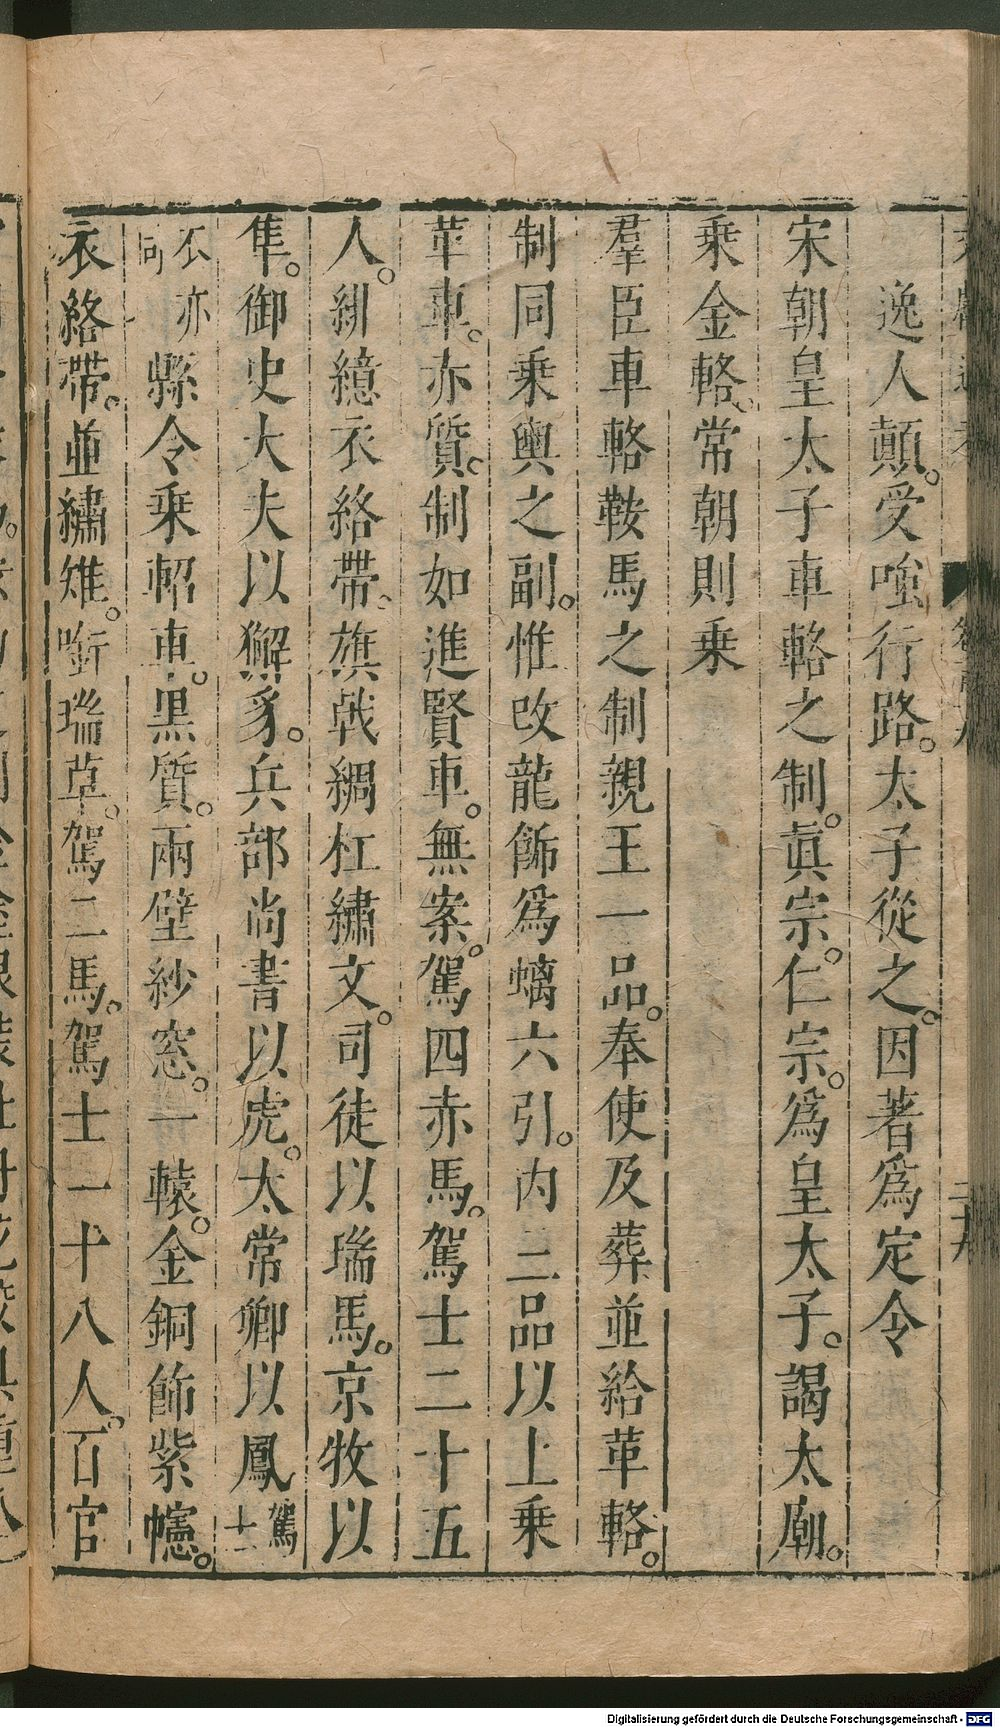 逸人顛。受嗤行路。太子從之。因著爲定令
宋朝皇太子車輅之制。眞宗。仁宗。爲皇太子。謁太廟。
乘金輅。常朝則乘
羣臣車輅鞍馬之制親王一品。奉使及葬並給革輅。
制同乘輿之副。惟改龍飾爲螭六引。内三品以上乘
革車。亦質。制如進賢車。無案。駕四赤馬。駕士二十五
人。緋繶衣絡帶。旗戟綢杠繡文。司徒以瑞馬。京牧以
隼。御史大夫以獬豸。兵部尚書以虎。太常卿以鳳駕士
衣亦同縣令乘軺車。黑質。兩壁紗窓。一轅。金銅飾紫幰。
衣絡帶。並繡雉。銜瑞草。駕二馬。駕士一十八人。百官
Digitalisierung gefördert durch die Deutsche Forschungsgemeinschaft - DFG